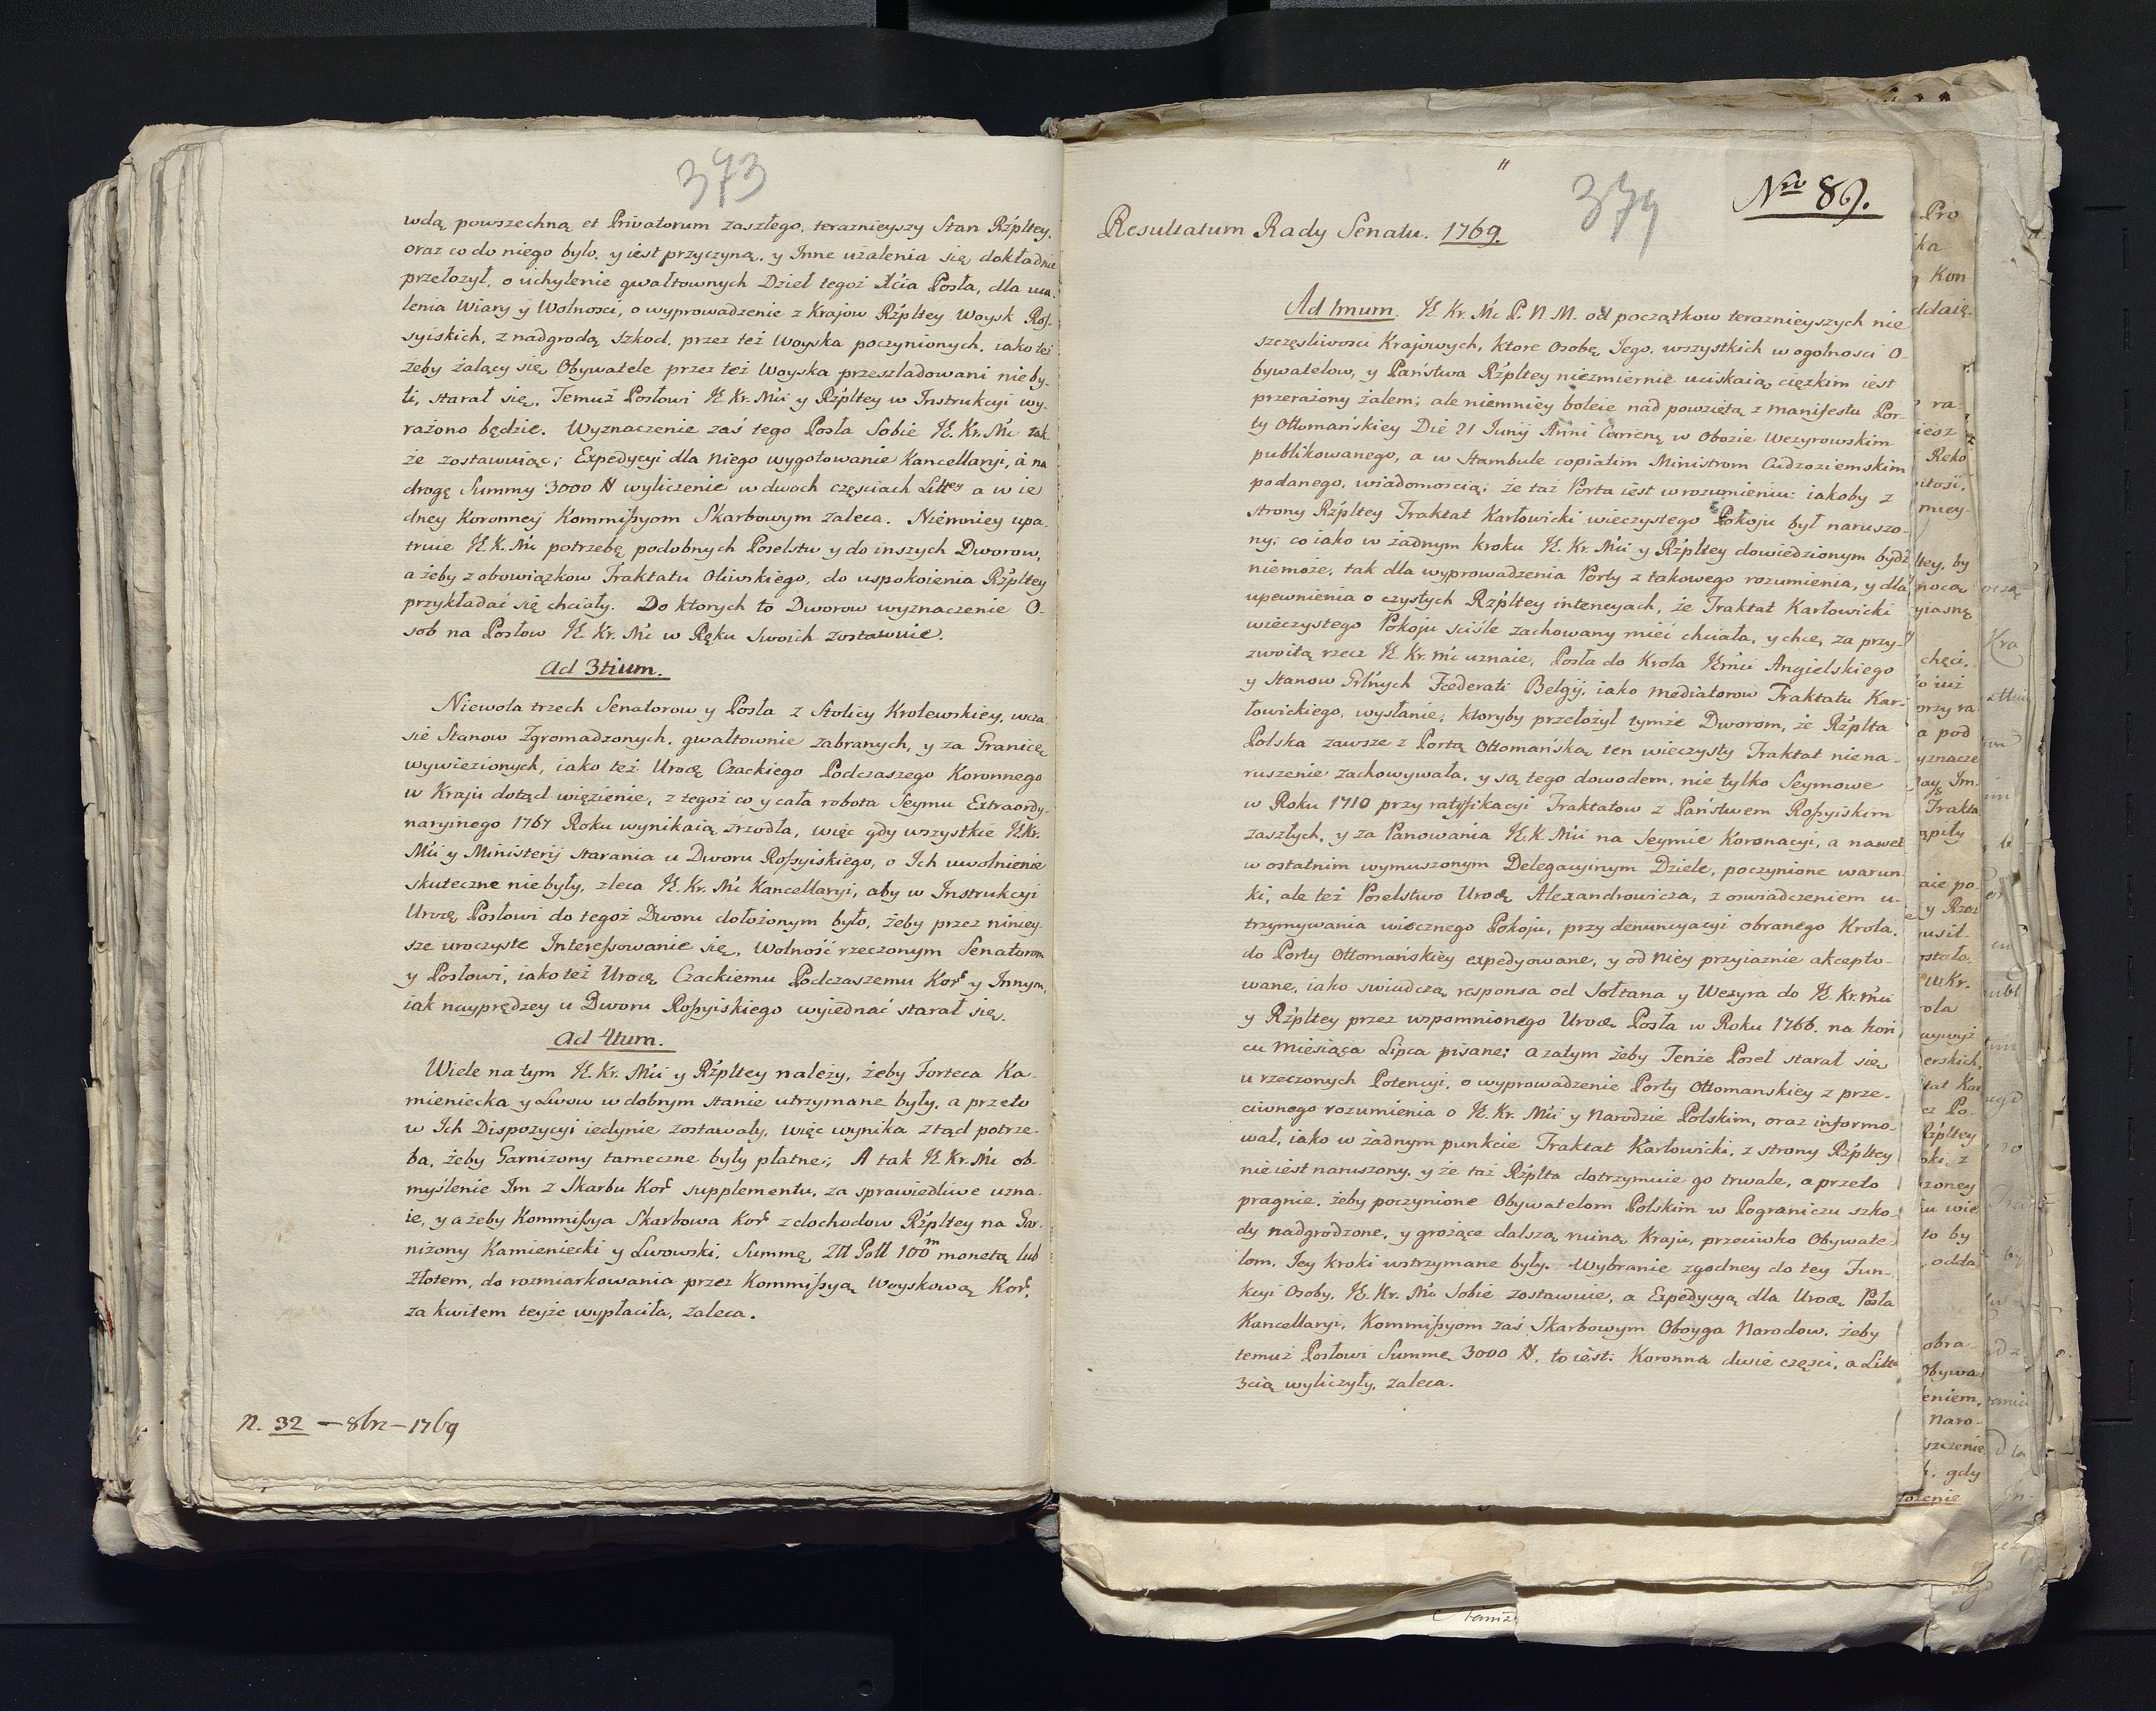 373
wdą powszechną et Privatorum zaszłego, teraznieyszy Stan Rzpltey,
oraz co do niego było, y iest przyczyną, y Inne użalenia się dokładnie
przełożył, o uchylenie gwałtownych Dzieł tegoż Xcia Posła, dla oca-
lenia Wiary y Wolnosci, o wyprowadzenie z Krajow Rzpltey Woysk Ros-
syiskich, z nadgrodą szkod, przez też Woyska poczynionych, iako też
żeby żalący się Obywatele przez też Woyska przesladowani nieby-
li, starał się. Temuż Posłowi JK. Kr. Mci y Rzpltey w Instrukcyi wy-
rażono będzie. Wyznaczenie zaś tego Posła Sobie JK. Kr. Mć tak
że zostawuiąc; Expedycyi dla Niego wygotowanie Kancellaryi, a na
drogę Summy 3000 # wyliczenie w dwoch częsciach Littey a w ie
dney Koronney Kommissyom Skarbowym zaleca. Niemniey upa-
truie JK. K. Mć potrzebę podobnych Poselstw y do inszych Dworow,
ażeby z obowiązkow Traktatu Oliwskiego, do uspokoienia Rzpltey
przykładać się chciały. Do ktorych to Dworow wyznaczenie O-
sob na Posłow JK. Kr. Mć w Ręku Swoich zostawuie.
Ad 3tium.
Niewola trzech Senatorow y Posła z Stolicy Krolewskiey, wcza-
sie Stanow Zgromadzonych, gwałtownie zabranych, y za Granicę
wywiezionych, iako też Urodz Czackiego Podczaszego Koronnego
w Kraju dotąd więzienie, z tegoż co y cała robota Seymu Extraordy-
naryinego 1767 Roku wynikaią zrzodła, więc gdy wszystkie JKKr.
Mci y Ministerij starania u Dworu Rossyiskiego, o Ich uwolnienie
skuteczne niebyły, zleca JK. Kr. Mć Kancellaryi, aby w Instrukcyi
Urodz Posłowi do tegoż Dworu dołożonym było, żeby przez niniey-
sze uroczyste Interessowanie się, Wolność rzeczonym Senatorom
y Posłowi, iako też Urodz Czackiemu Podczaszemu Kor y Innym,
iak nayprędzey u Dworu Rossyiskiego wyiednać starał się.
Ad 4tum.
Wiele na tym JK. Kr. Mci y Rzpltey należy, żeby Forteca Ka-
mieniecka y Lwow w dobrym stanie utrzymane były, a przeto
w Ich Dispozycyi iedynie zostawały, więc wynika ztąd potrze-
ba, żeby Garnizony tameczne były płatne; A tak JK. Kr. Mć ob-
myślenie Im z Skarbu Kor supplementu, za sprawiedliwe uzna-
ie, y ażeby Kommissya Skarbowa Kor z dochodow Rzpltey na Gar-
nizony Kamieniecki y Lwowski, Summę Złł Poll 100m monetą lub
Złotem, do rozmiarkowania przez Kommissyą Woyskową Kor,
za kwitem teyże wypłaciła, zaleca.
N. 32 – 8br – 1769
379
Nro 89.
Resultatum Rady Senatu. 1769.
Ad 1mum. JK. Kr. Mć P. N. M. od początkow teraznieyszych nie
szczęsliwosci Krajowych, ktore Osobę Jego, wszystkich w ogolnosci O-
bywatelow, y Państwa Rzpltey niezmiernie uciskaią, ciężkim iest
przerażony żalem; ale niemniey boleie nad powziętą z Manifestu Por-
ty Ottomańskiey Die 21 Junij Anni Currenę w Obozie Wezyrowskim
publikowanego, a w Stambule copiatim Ministrom Cudzoziemskim
podanego, wiadomoscią; że taż Porta iest w rozumieniu: iakoby z
strony Rzpltey Traktat Karłowicki wieczystego Pokoju był naruszo-
ny; co iako w żadnym kroku JK. Kr. Mci y Rzpltey dowiedzionym bydź
niemoże, tak dla wyprowadzenia Porty z takowego rozumienia, y dla
upewnienia o czystych Rzpltey intencyach, że Traktat Karłowicki
wieczystego Pokoju sciśle zachowany mieć chciała, y chce, za przy-
zwoitą rzecz JK. Kr. Mć uznaie, Posła do Krola JEmci Angielskiego
y Stanow Grlnych Fœderati Belgij, iako mediatorow Traktatu Kar-
łowickiego, wysłanie; ktoryby przełożył tymże Dworom, że Rzplta
Polska zawsze z Portą Ottomańską ten wieczysty Traktat niena-
ruszenie zachowywała, y są tego dowodem, nie tylko Seymowe
w Roku 1710 przy ratyfikacyi Traktatow z Państwem Rossyiskim
zaszłych, y za Panowania JK. K. Mci na Seymie Koronacyi, a nawet
w ostatnim wymuszonym Delegacyinym Dziele, poczynione warun-
ki, ale też Poselstwo Urodz Alexandrowicza, z oswiadczeniem u-
trzymywania wiecznego Pokoju, przy denuncyacyi obranego Krola,
do Porty Ottomańskiey expedyowane, y od Niey przyiaznie akcepto-
wane, iako swiadczą responsa od Sołtana y Wezyra do JK. Kr. Mci
y Rzpltey przez wspomnionego Urodz Posła w Roku 1766. na koń
cu Miesiąca Lipca pisane; a zatym żeby Tenże Poseł starał się
u rzeczonych Potencyi, o wyprowadzenie Porty Ottomanskiey z prze-
ciwnego rozumienia o JK. Kr. Mci y Narodzie Polskim, oraz informo-
wał, iako w żadnym punkcie Traktat Karłowicki, z strony Rzpltey
nie iest naruszony, y że taż Rzplta dotrzymuie go trwale, a przeto
pragnie, żeby poczynione Obywatelom Polskim w Pograniczu szko-
dy nadgrodzone, y grożące dalszą ruiną Kraju, przeciwko Obywate-
lom, Jey kroki wstrzymane były. Wybranie zgodney do tey Fun-
kcyi Osoby, JK. Kr. Mć Sobie zostawuie, a Expedycyą dla Urodz Posła
Kancellaryi, Kommissyom zaś Skarbowym Oboyga Narodow, żeby
temuż Posłowi Summę 3000 #, to iest: Koronna dwie częsci, a Litta
3cią wyliczyły, zaleca.